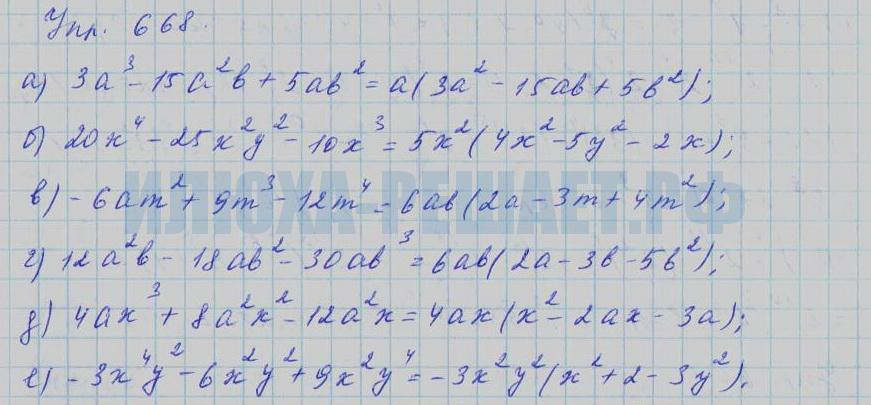 Упр. 668.
а) 3a³ - 15a²b + 5ab² = a(3a² - 15ab + 5b²);
б) 20x⁴ - 25x²y² - 10x³ = 5x²(4x² - 5y² - 2x);
в) - 6am² + 9m³ - 12m⁴ = 6ab(2a - 3m + 4m²);
ИЛЮХА-РЕШАЕТ.РФ
г) 12a²b - 18ab² - 30ab³ = 6ab(2a - 3b - 5b²);
д) 4ax³ + 8a²x² - 12a²x = 4ax(x² - 2ax - 3a);
е) - 3x⁴y² - 6x²y² + 9x²y⁴ = - 3x²y²(x² + 2 - 3y²).